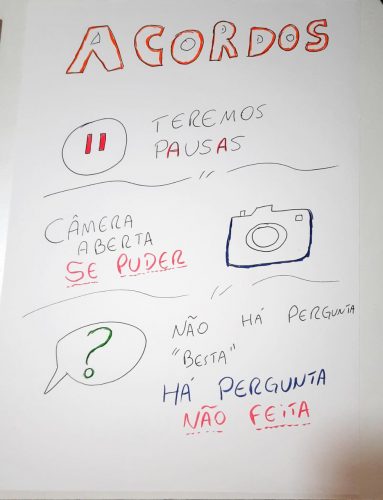 ACORDOS
TEREMOS
PAUSAS
CÂMERA
ABERTA
SE PUDER
?
NÃO HÁ PERGUNTA
"BESTA"
HÁ PERGUNTA
NÃO FEITA